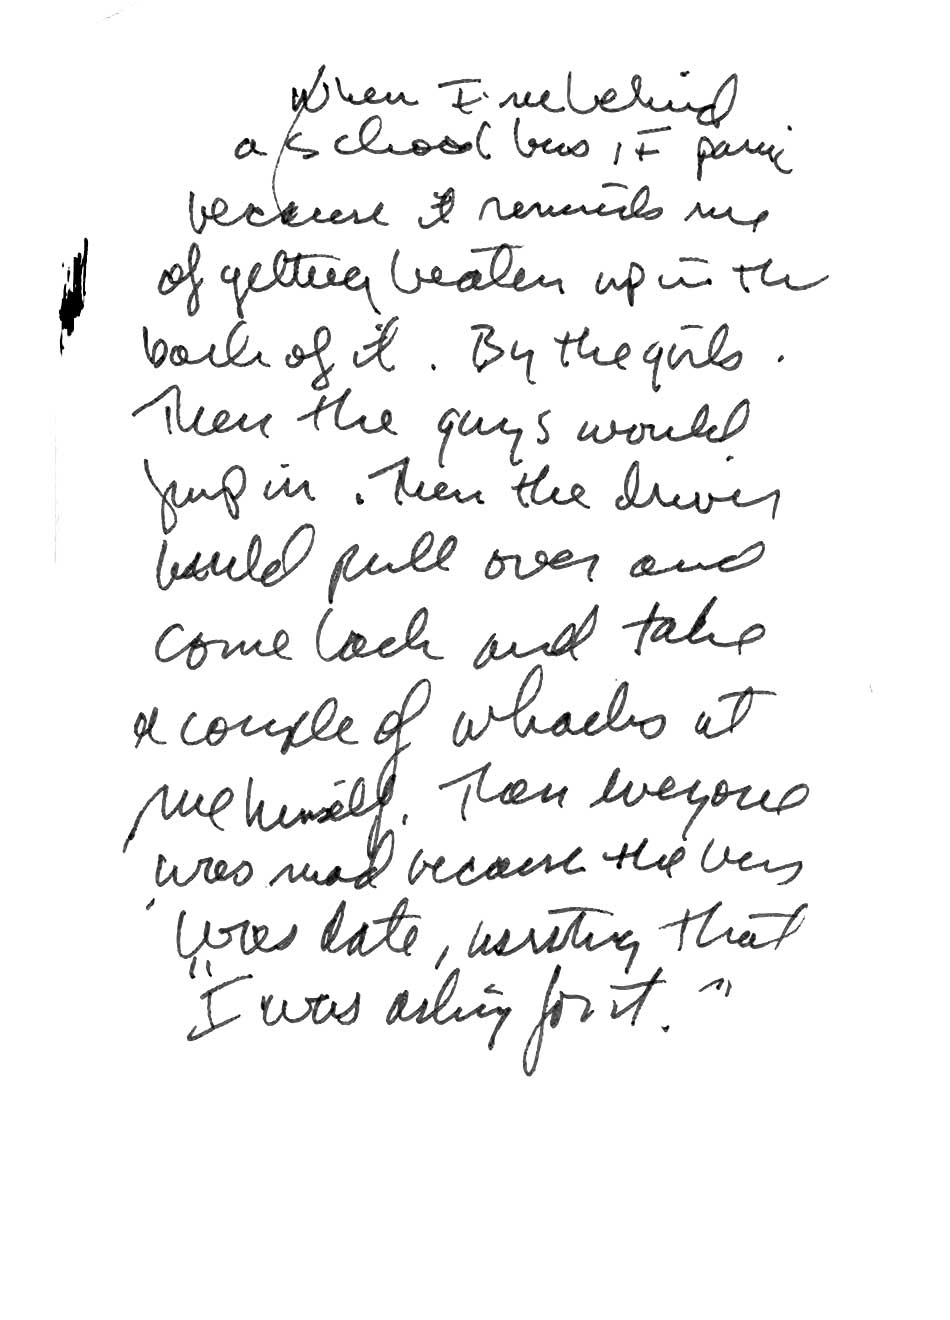 When I'm behind
a school bus, I panic
because it reminds me
of getting beaten up in the
back of it. By the girls.
Then the guys would
jump in. Then the driver
would pull over and
come back and take
a couple of whacks at
me himself. Then everyone
was mad because the bus
was late, insisting that
"I was asking for it."